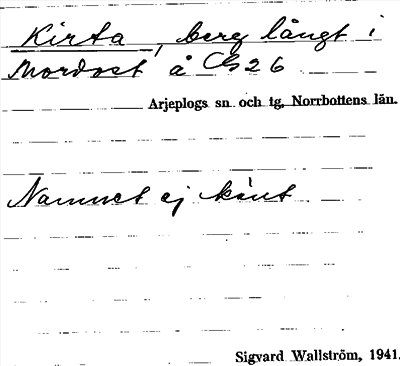 Kirta, berg långt i
Nordost å Cb 26
Arjeplogs sn. och tg, Norrbottens län.
Namnet ej känt
Sigvard Wallström, 1941.